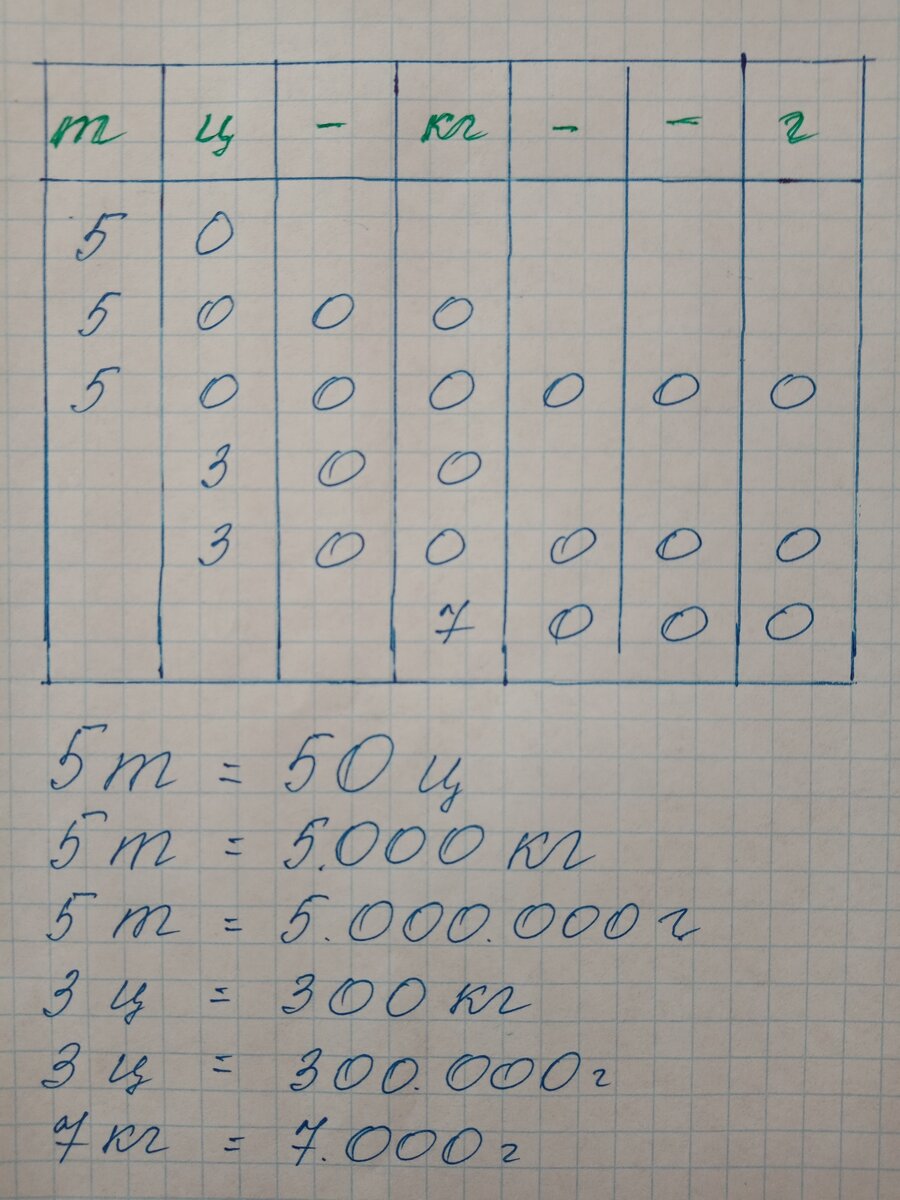 т ц - кг - - г
5 0
5 0 0 0
5 0 0 0 0 0 0
3 0 0
3 0 0 0 0 0
7 0 0 0
5 т = 50 ц
5 т = 5.000 кг
5 т = 5.000.000 г
3 ц = 300 кг
3 ц = 300.000 г
7 кг = 7.000 г